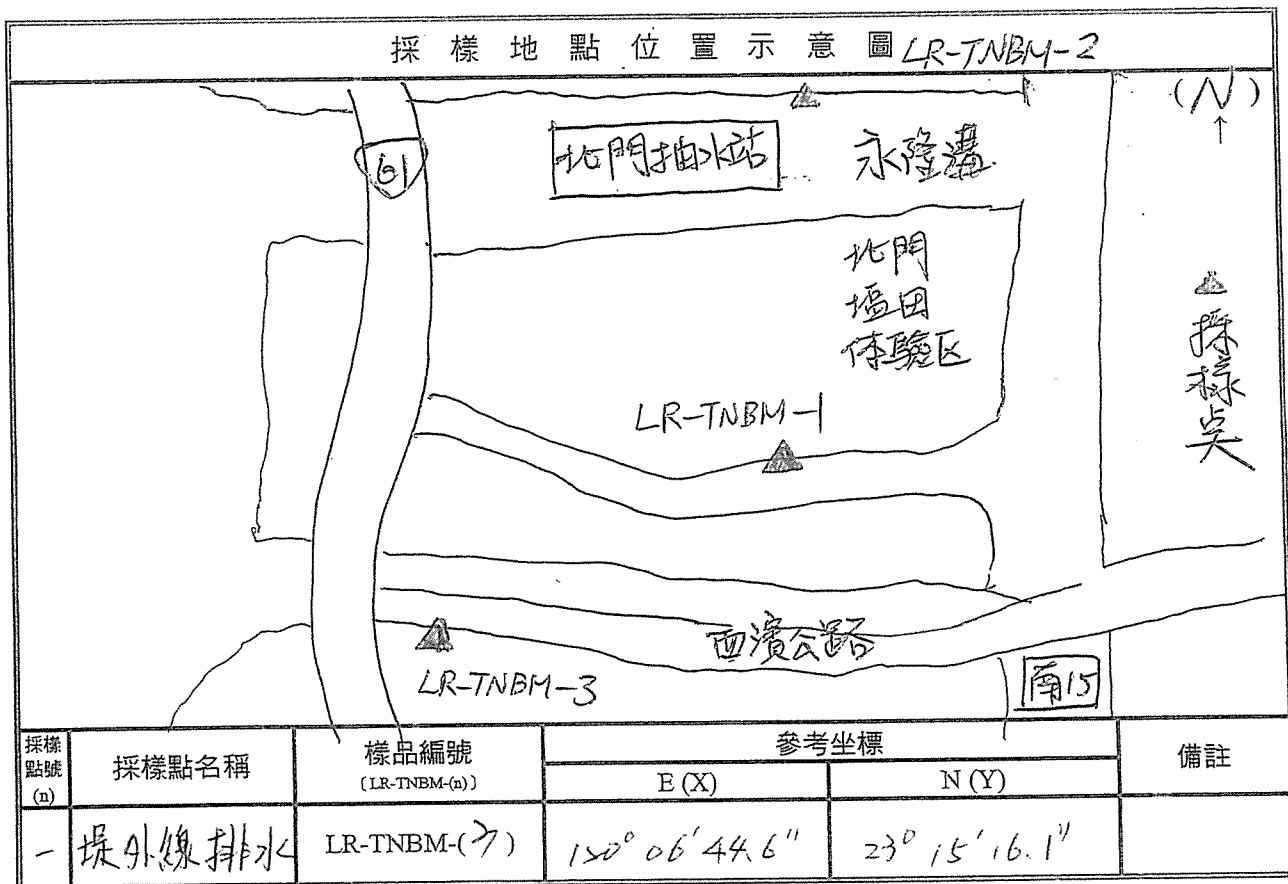 採樣地點位置示意圖 LR-TNBM-2
(N)
↑
61
北門抽水站
永隆溝
北門
塩田
体驗区
採樣点
LR-TNBM-1
西濱公路
LR-TNBM-3
南15
採樣點號(n)
採樣點名稱
樣品編號
〔LR-TNBM-(n)〕
參考坐標
E (X)
N (Y)
備註
堤外線排水
LR-TNBM-(3)
120° 06' 44.6"
23° 15' 16.1"